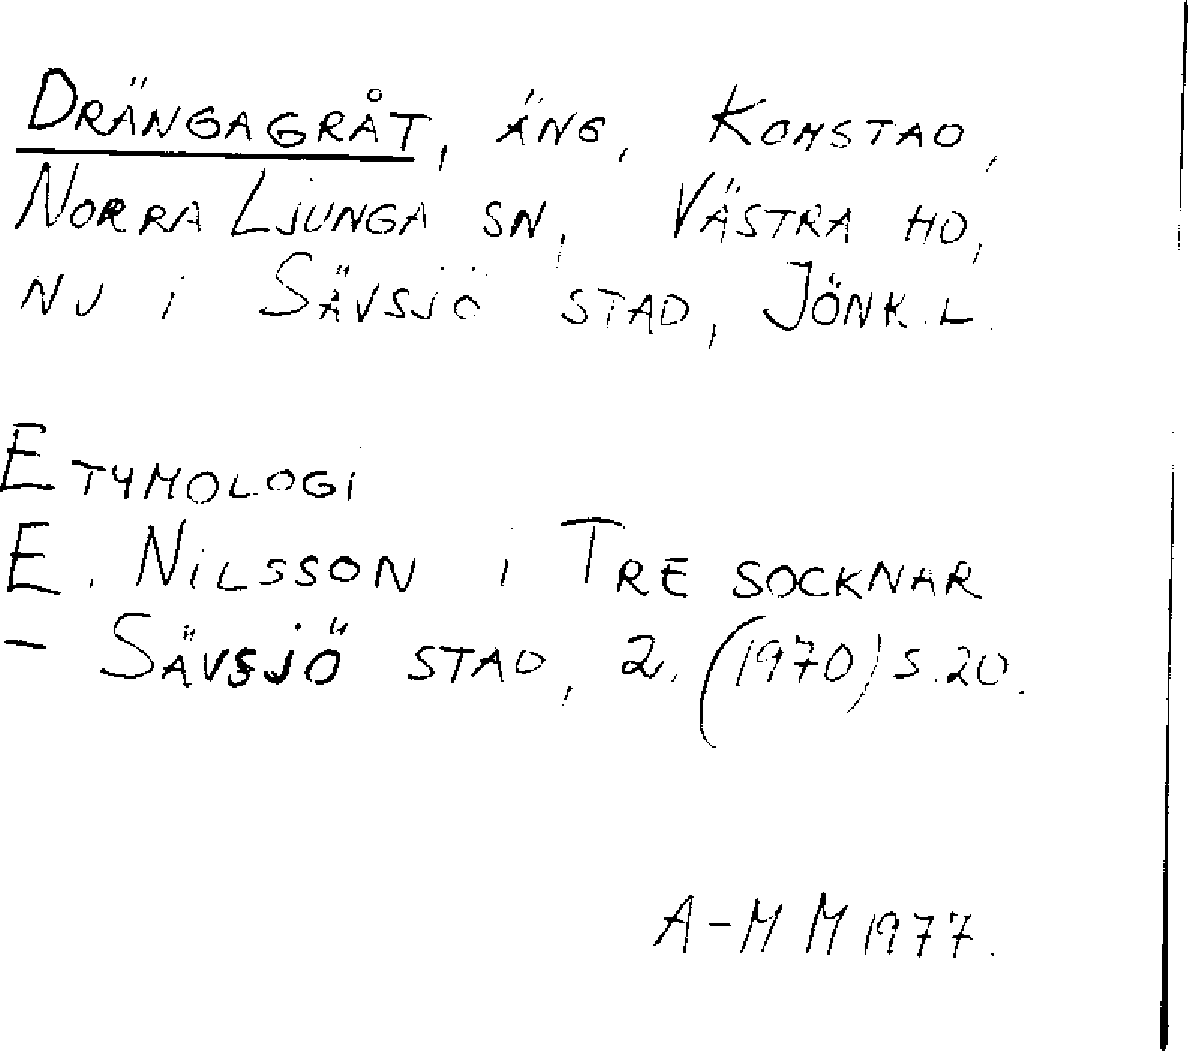 DRÄNGAGRÅT, ÄNG, KOMSTAD,
NORRA LJUNGA SN, VÄSTRA HD,
NU i SÄVSJÖ STAD, JÖNK.L.
ETYMOLOGI
E. NILSSON i TRE SOCKNAR
– SÄVSJÖ STAD, 2. (1970) S.20.
A-M M 1977.